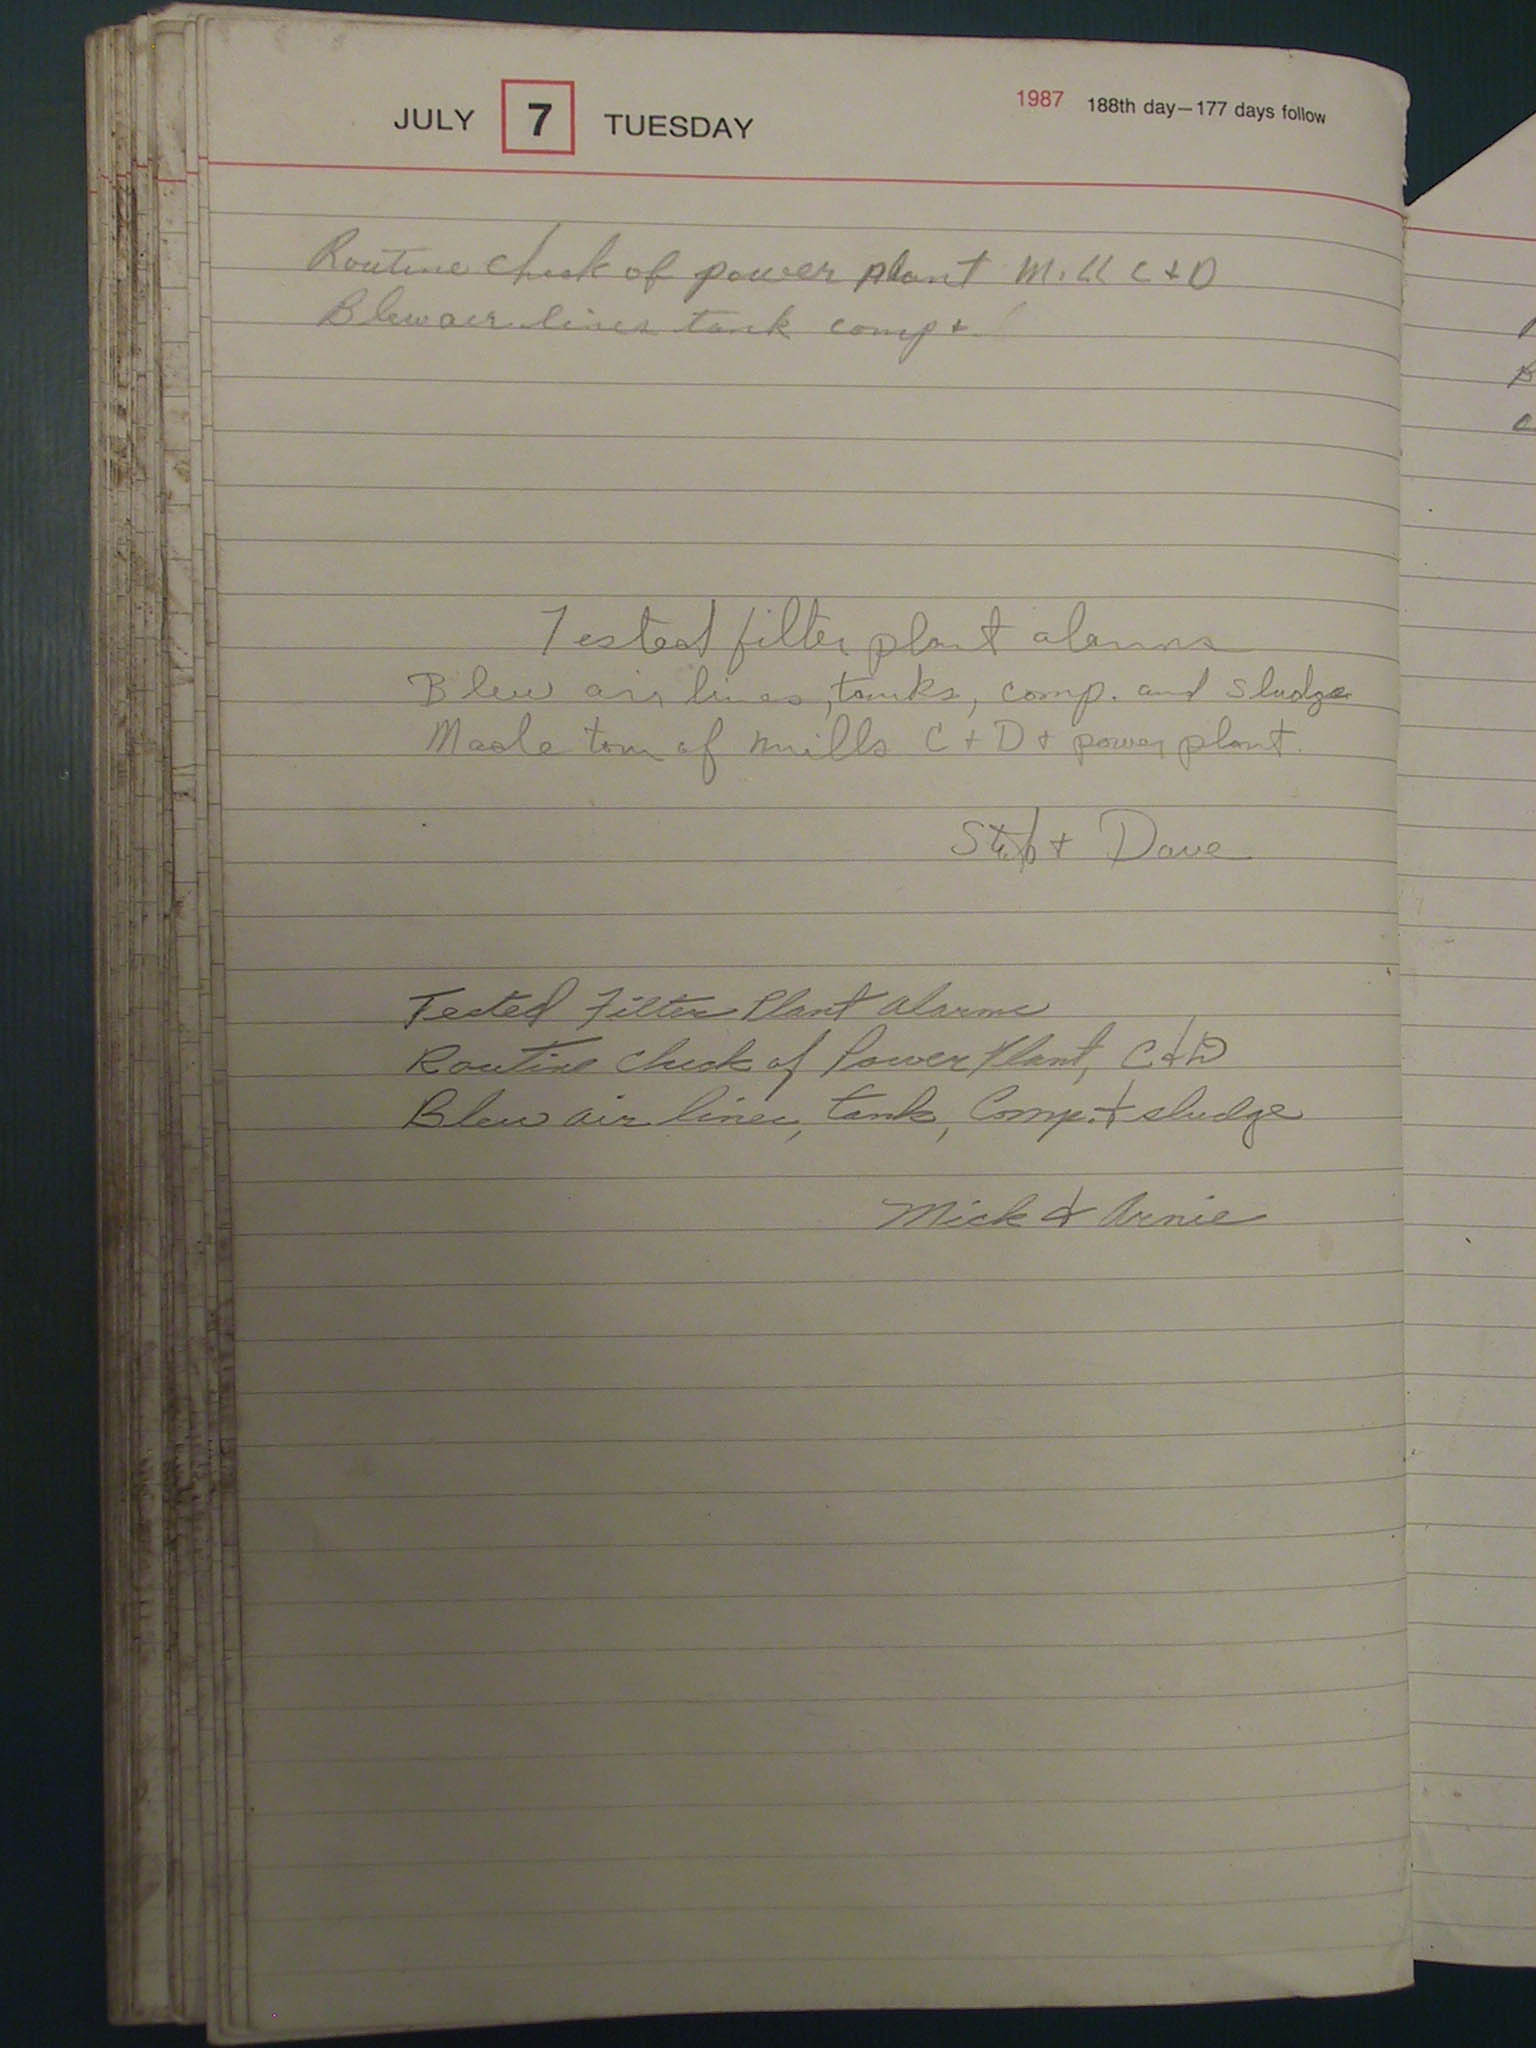 JULY 7 TUESDAY 1987 188th day—177 days follow
Routine check of power plant Mill C + D
Blew air lines tank comp +
Tested filter plant alarms
Blew air lines, tanks, comp. and sludge
Made tour of mills C + D + power plant.
+ Dave
Tested Filter Plant alarms
Routine check of Power Plant, C & D
Blew air lines, tank, Comp. & sludge
Mick & Arnie